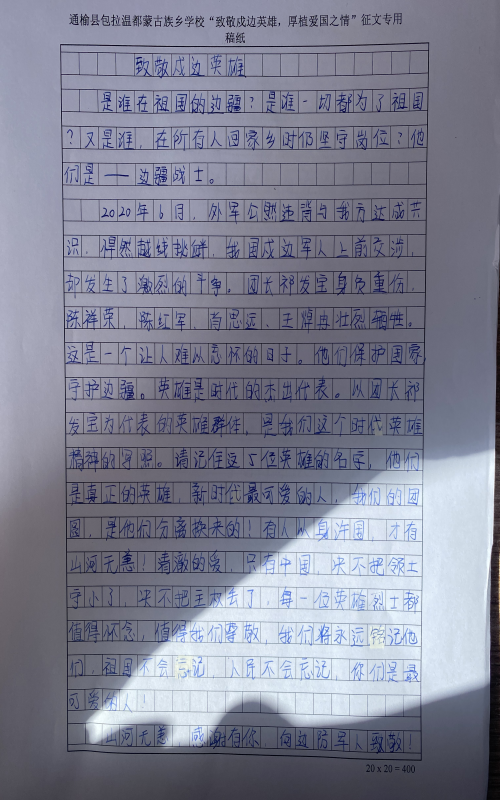 通榆县包拉温都蒙古族乡学校“致敬戍边英雄，厚植爱国之情”征文专用
稿纸
致敬戍边英雄
是谁在祖国的边疆？是谁一切都为了祖国
？又是谁，在所有人回家乡时仍坚守岗位？他
们是——边疆战士。
2020年6月，外军公然违背与我方达成共
识，悍然越线挑衅，我国戍边军人上前交涉，
却发生了激烈的斗争。团长祁发宝身负重伤，
陈祥荣，陈红军，肖思远、王焯冉壮烈牺牲。
这是一个让人难以忘怀的日子。他们保护国家，
守护边疆。英雄是时代的杰出代表。以团长祁
发宝为代表的英雄群体，是我们这个时代英雄
精神的写照。请记住这5位英雄的名字，他们
是真正的英雄，新时代最可爱的人，我们的团
圆，是他们分离换来的！有人以身许国，才有
山河无恙！清澈的爱，只有中国，决不把领土
守小了，决不把主权丢了，每一位英雄烈士都
值得怀念，值得我们尊敬，我们将永远铭记他
们，祖国不会忘记，人民不会忘记，你们是最
可爱的人！
山河无恙，感谢有你，向边防军人致敬！
20 x 20 = 400